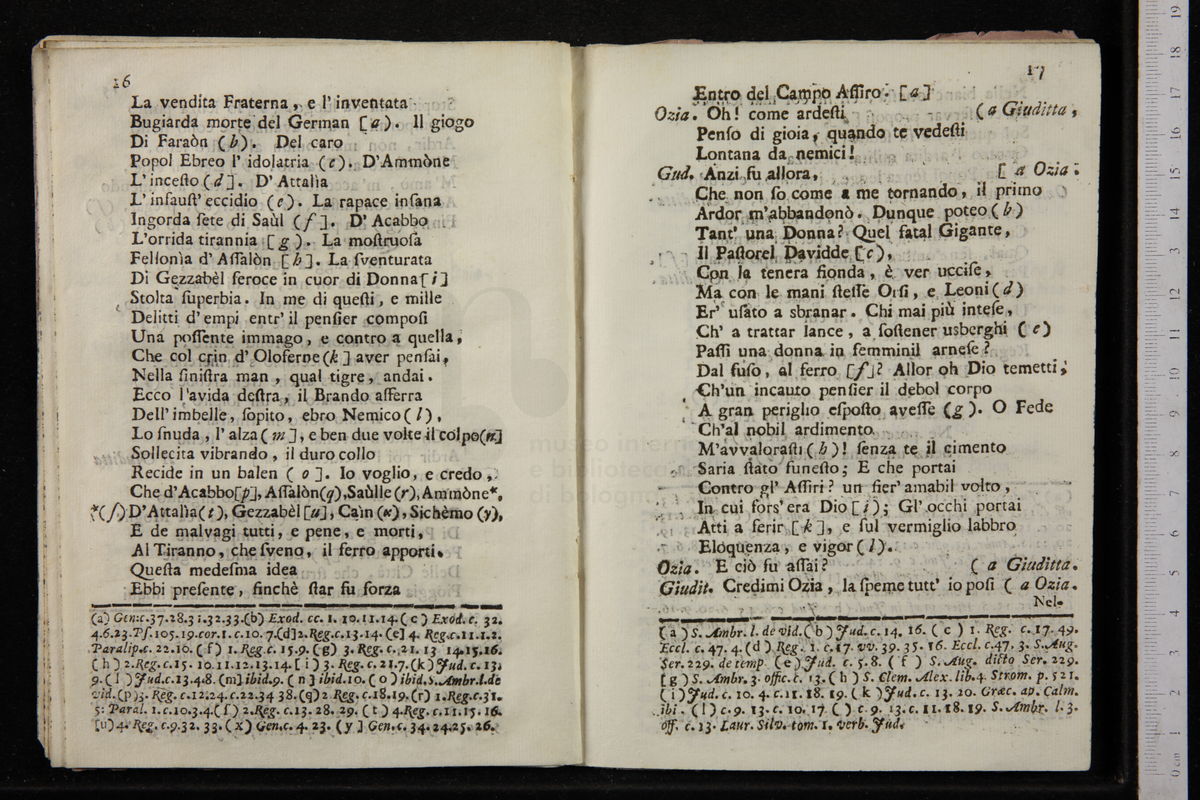 16
La vendita Fraterna, e l'inventata
Bugiarda morte del German [a). Il giogo
Di Faraòn (b). Del caro
Popol Ebreo l'idolatria (c). D'Ammòne
L'incesto (d]. D'Attalìa
L'infaust'eccidio (e). La rapace insana
Ingorda sete di Saùl (f]. D'Acabbo
L'orrida tirannia [g). La mostruosa
Fellonìa d'Assalòn [h]. La sventurata
Di Gezzabèl feroce in cuor di Donna[i]
Stolta superbia. In me di questi, e mille
Delitti d'empi entr'il pensier composi
Una possente immago, e contro a quella,
Che col crin d'Oloferne(k] aver pensai,
Nella sinistra man, qual tigre, andai.
Ecco l'avida destra, il Brando afferra
Dell'imbelle, sopito, ebro Nemico(l),
Lo snuda, l'alza(m], e ben due volte il colpo(n]
Sollecita vibrando, il duro collo
Recide in un balen (o]. Io voglio, e credo,
Che d'Acabbo[p], Assalòn(q), Saùlle(r), Ammòne*,
*(s)D'Attalìa(t), Gezzabèl[u], Caìn(x), Sichèmo(y),
E de malvagi tutti, e pene, e morti,
Al Tiranno, che sveno, il ferro apporti.
Questa medesma idea
Ebbi presente, finchè star fu forza
(a) Gen:c.37.28.31.32.33.(b) Exod. cc. 1. 10.11.14.(c) Exod.c. 32.
4.6.23.Ps.105.19.cor.1.c.10.7.(d]2.Reg.c.13.14.(e] 4. Reg.c.11.1.2.
Paralip.c. 22.10.(f) 1.Reg.c.15.9.(g) 3.Reg.c.21.13 14.15.16.
(h) 2.Reg.c.15. 10.11.12.13.14.[i) 3. Reg.c.21.7.(k) Jud.c.13.
9.(l) Jud.c.13.4.8.(m] ibid.9.(n] ibid.10.(o) ibid.S.Ambr.l.de
vid.(p)3. Reg.c.12.24.c.22.34 38.(q)2.Reg.c.18.19.(r) 1.Reg.c.31.
5: Paral. 1.c.10.3.4.(s) 2.Reg.c.13.28.29.(t) 4.Reg.c.11.15.16.
[u)4.Reg.c.9.32.33.(x) Gen.c.4.23.(y] Gen.c.34.24.25.26.
17
Entro del Campo Assiro. [a]
Ozia. Oh! come ardesti (a Giuditta,
Penso di gioia, quando te vedesti
Lontana da nemici!
Gud. Anzi fu allora, [a Ozia.
Che non so come a me tornando, il primo
Ardor m'abbandonò. Dunque poteo(b)
Tant'una Donna? Quel fatal Gigante,
Il Pastorel Davidde [c),
Con la tenera fionda, è ver uccise,
Ma con le mani stesse Orsi, e Leoni(d)
Er'usato a sbranar. Chi mai più intese,
Ch'a trattar lance, a sostener usberghi (e)
Passi una donna in femminil arnese?
Dal fuso, al ferro [f]? Allor oh Dio temetti,
Ch'un incauto pensier il debol corpo
A gran periglio esposto avesse (g). O Fede
Ch'al nobil ardimento
M'avvalorasti(h)! senza te il cimento
Saria stato funesto; E che portai
Contro gl'Assiri? un fier'amabil volto,
In cui fors'era Dio[i); Gl'occhi portai
Atti a ferir[k], e sul vermiglio labbro
Eloquenza, e vigor(l).
Ozia. E ciò fu assai? (a Giuditta.
Giudit. Credimi Ozia, la speme tutt'io posi (a Ozia.
Nel-
(a) S. Ambr. l. de vid.(b) Jud.c.14.16. (c) 1. Reg. c.17.49.
Eccl. c.47.4.(d) Reg. 1. c.17.vv.39.35.16. Eccl.c.47. 3. S.Aug.
Ser.229. de temp. (e) Jud. c.5.8. (f) S. Aug. dicto Ser. 229.
[g) S. Ambr.3. offic.c. 13.(h) S. Clem. Alex. lib.4. Strom. p.521.
(i) Jud. c.10.4.c.11.18.19.(k) Jud.c.13.20. Græc. ap. Calm.
ibi. (l) c.9.13.c.10.17.() c.9.13.c.11.18.19. S. Ambr. l.3.
off. c.13. Laur. Silv. tom.1. verb. Jud.
museo inter
e biblioteca
di bologna